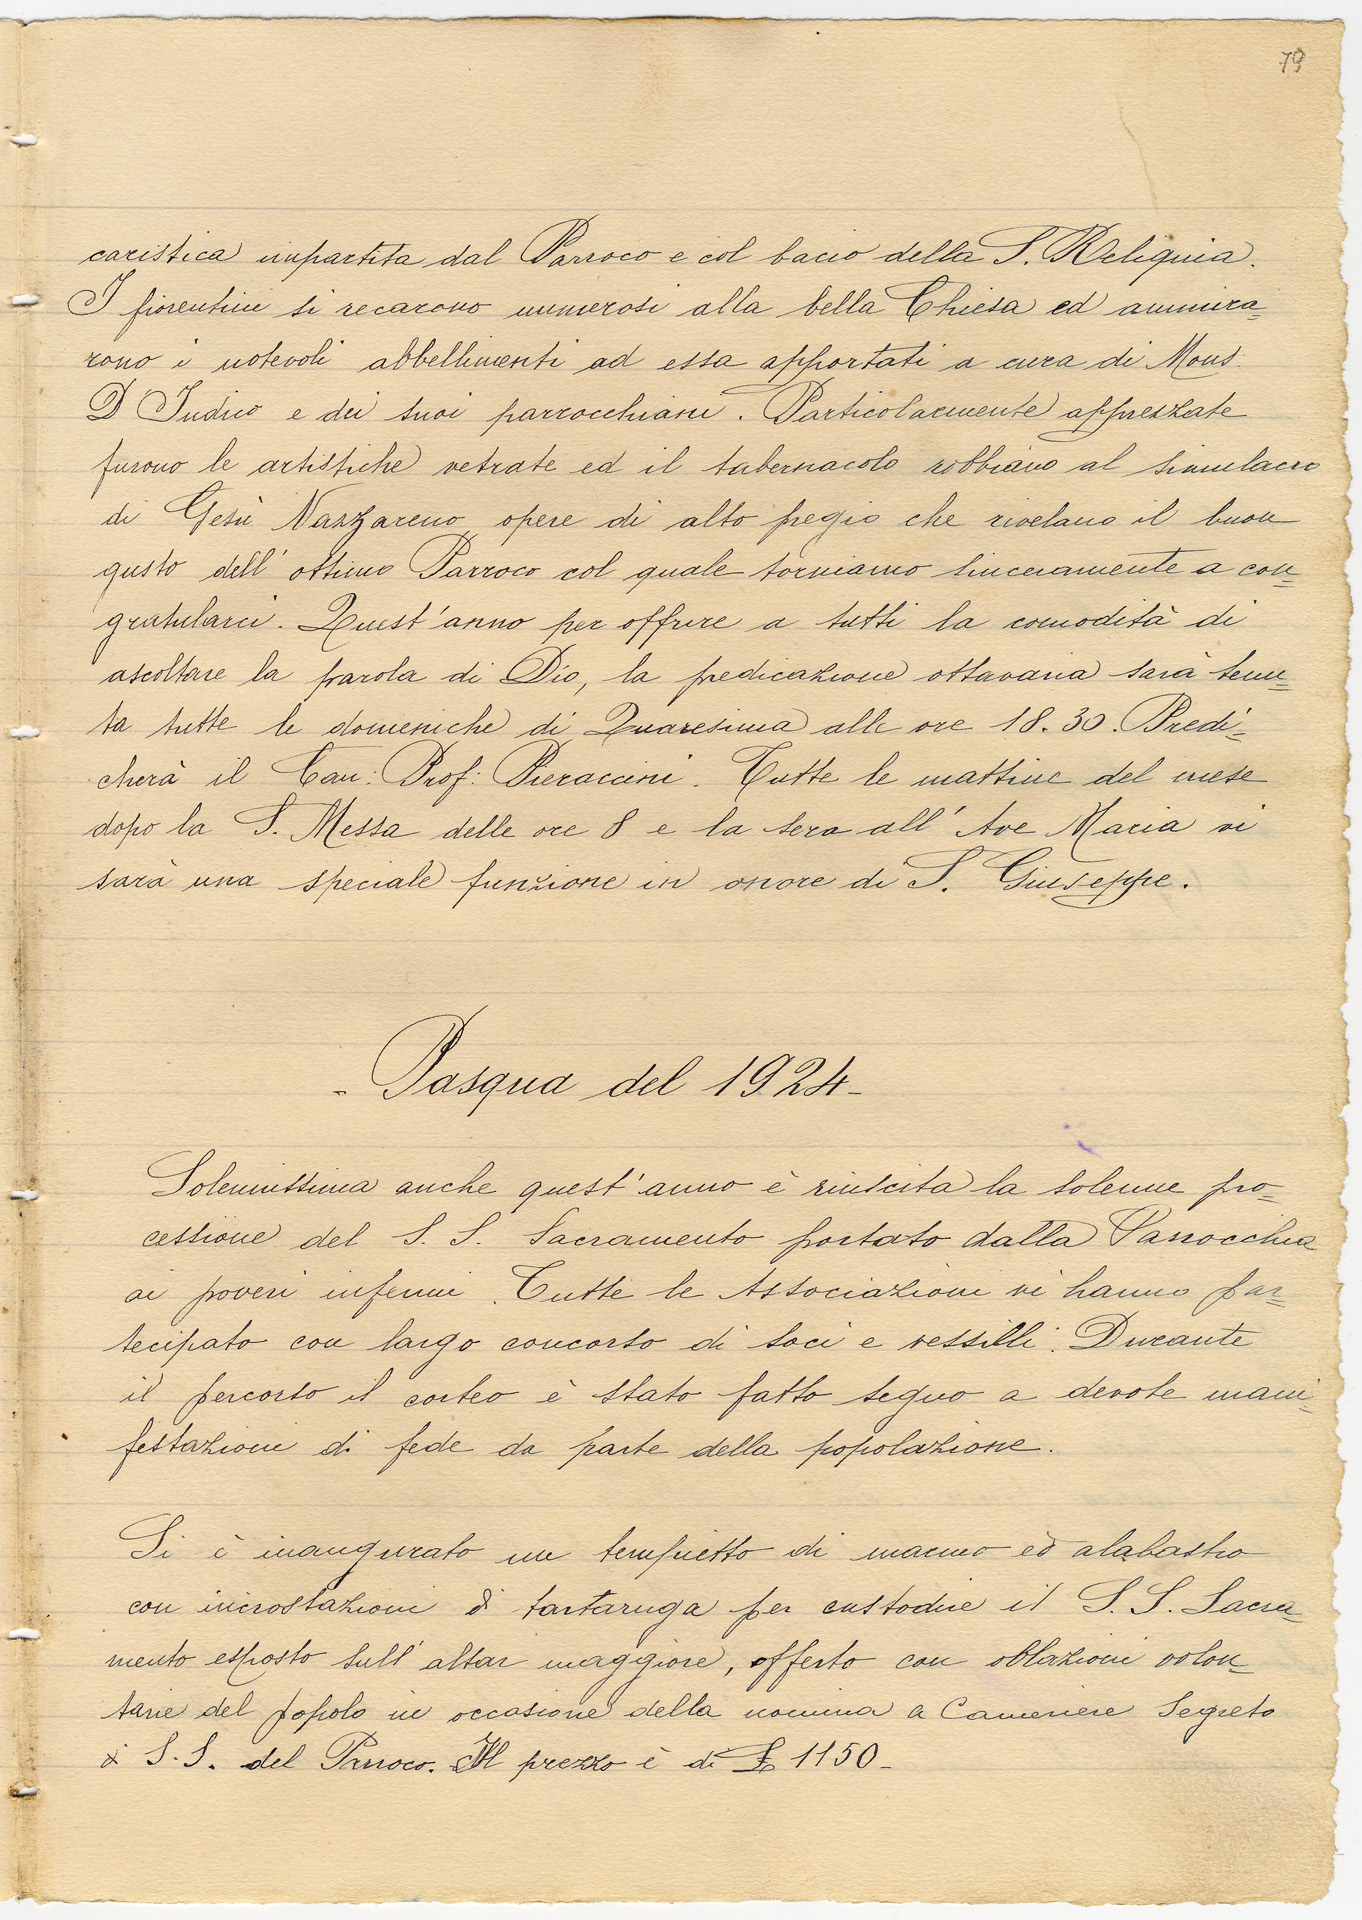 79
caristica impartita dal Parroco e col bacio della S. Reliquia.
I fiorentini si recarono numerosi alla bella Chiesa ed ammira=
rono i notevoli abbellimenti ad essa apportati a cura di Mons.
D'Indico e dei suoi parrocchiani. Particolarmente apprezzate
furono le artistiche vetrate ed il tabernacolo robbiano al simulacro
di Gesù Nazzareno opere di alto pregio che rivelano il buon
gusto dell'ottimo Parroco col quale torniamo sinceramente a con=
gratularci. Quest'anno per offrire a tutti la comodità di
ascoltare la parola di Dio, la predicazione ottavaria sarà tenu=
ta tutte le domeniche di Quaresima alle ore 18.30. Predi=
cherà il Can: Prof: Pieraccini. Tutte le mattine del mese
dopo la S. Messa delle ore 8 e la sera all'Ave Maria vi
sarà una speciale funzione in onore di S. Giuseppe.
- Pasqua del 1924 -
Solennissima anche quest'anno è riuscita la solenne pro=
cessione del S. S. Sacramento portato dalla Parrocchia
ai poveri infermi. Tutte le Associazioni vi hanno par=
tecipato con largo concorso di soci e vessilli. Durante
il percorso il corteo è stato fatto segno a devote mani=
festazioni di fede da parte della popolazione.
Si è inaugurato un tempietto di marmo ed alabastro
con incrostazioni di tartaruga per custodire il S. S. Sacra=
mento esposto sull'altar maggiore, offerto con oblazioni volon=
tarie del popolo in occasione della nomina a Cameriere Segreto
di S. S. del Parroco. Il prezzo è di £ 1150 -